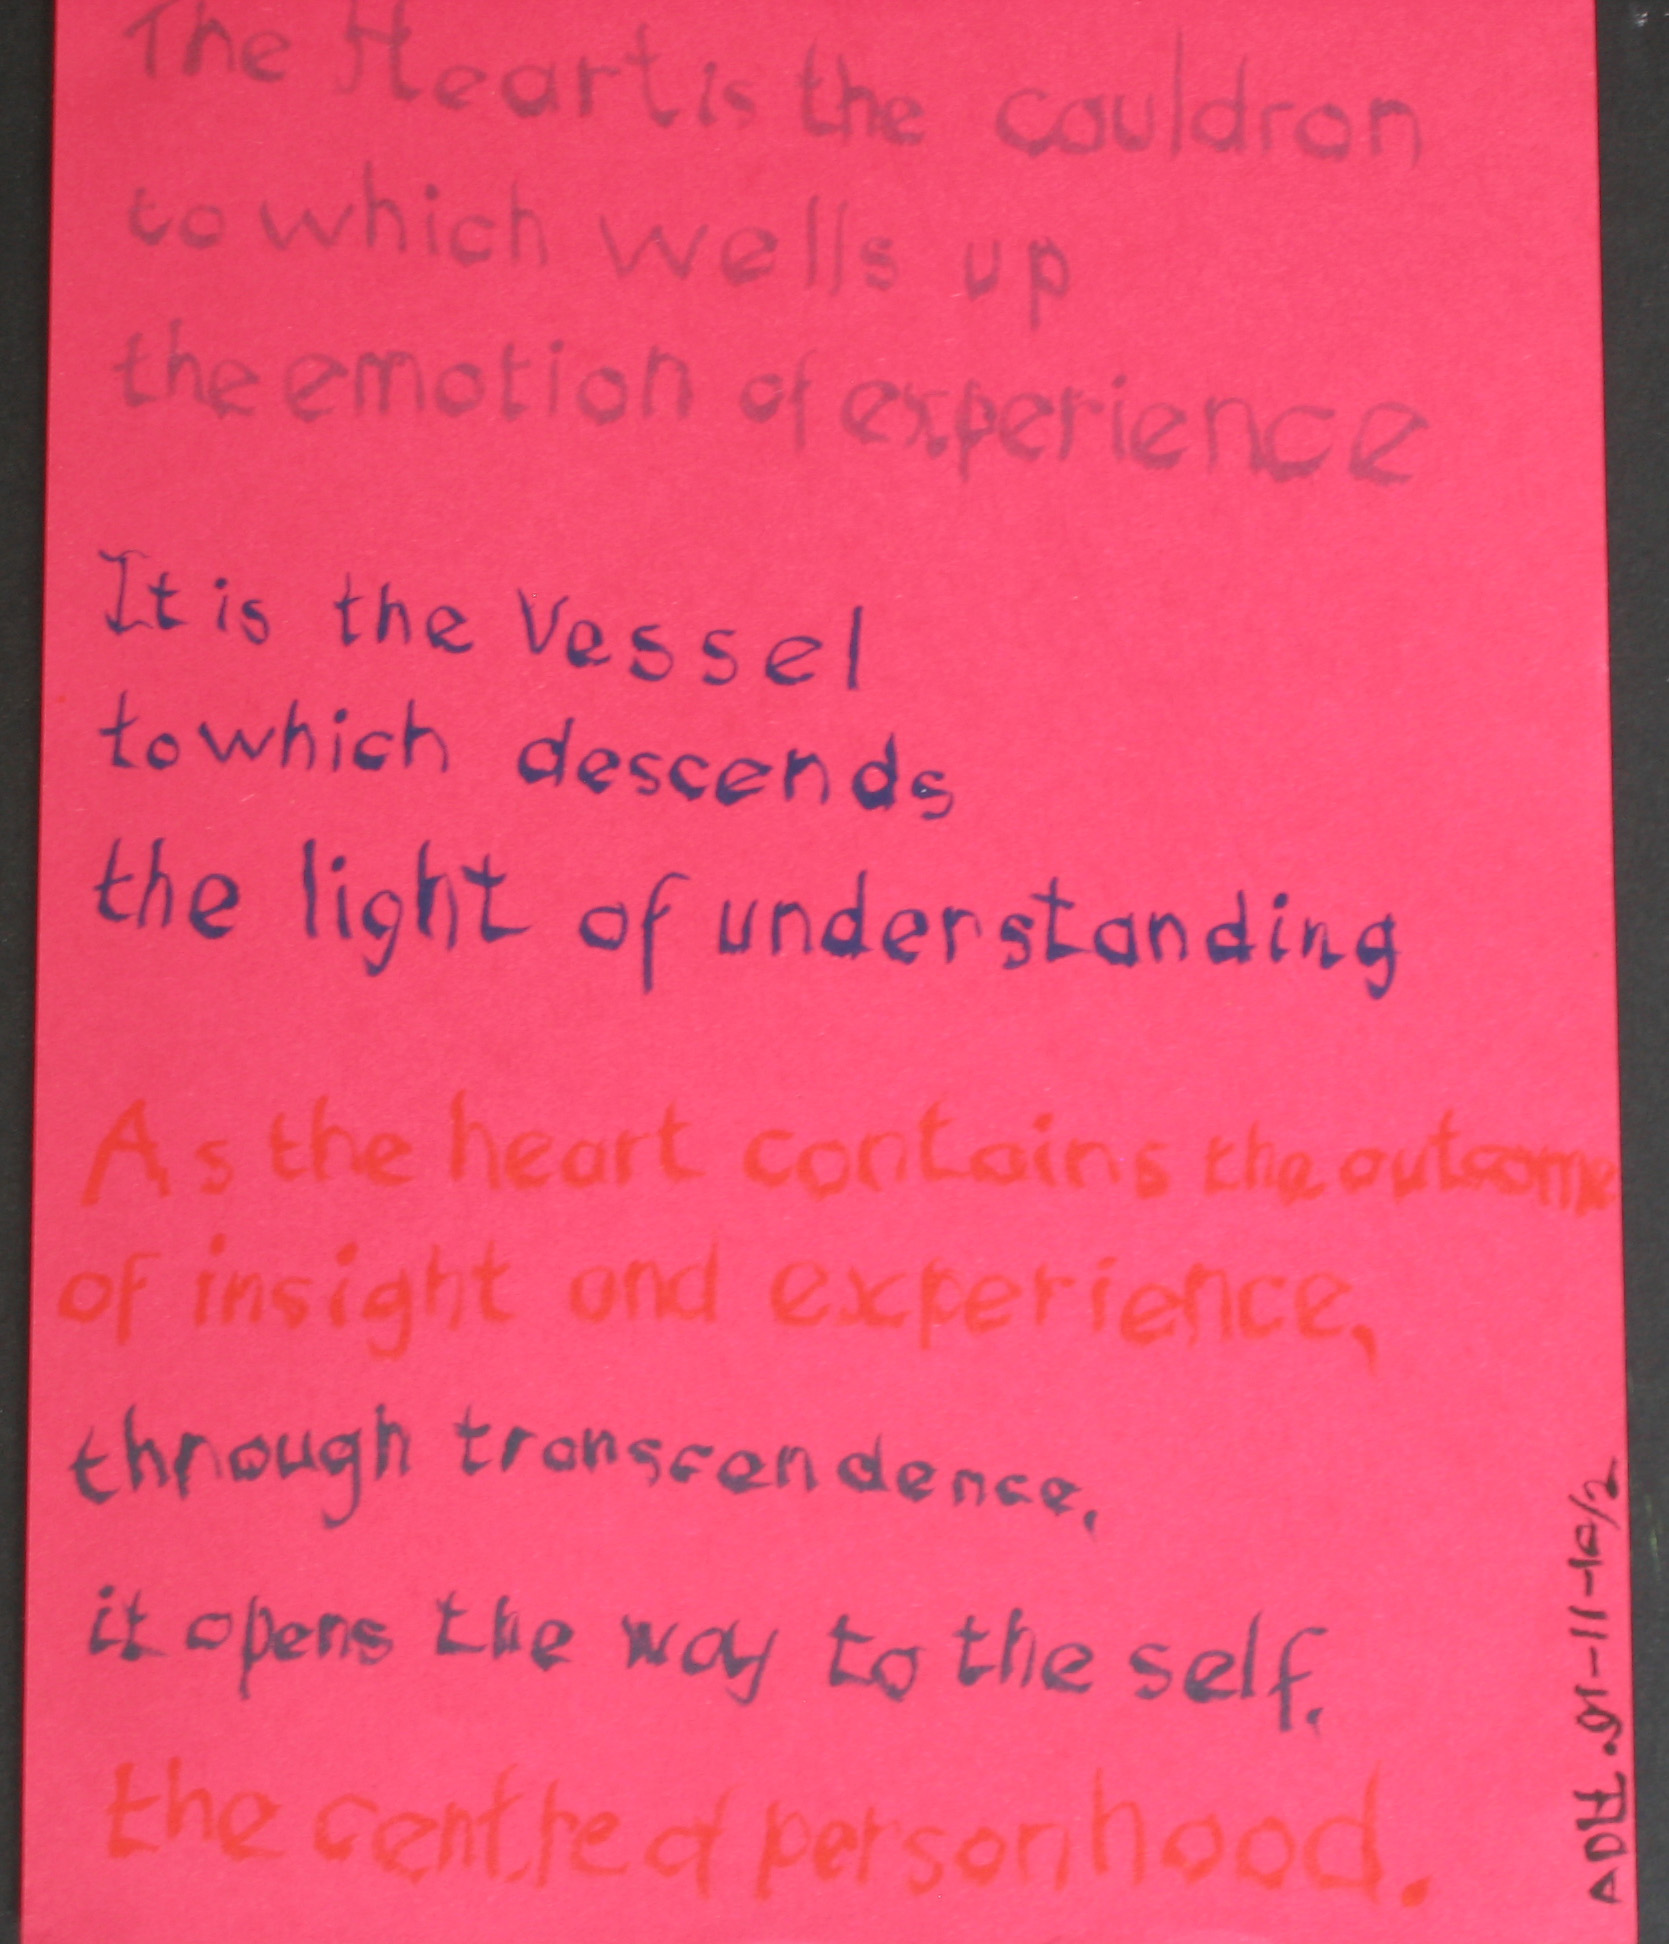 The Heart is the cauldron
to which wells up
the emotion of experience
It is the Vessel
to which descends
the light of understanding
As the heart contains the outcome
of insight and experience,
through transcendence,
it opens the way to the self,
the centre of personhood.